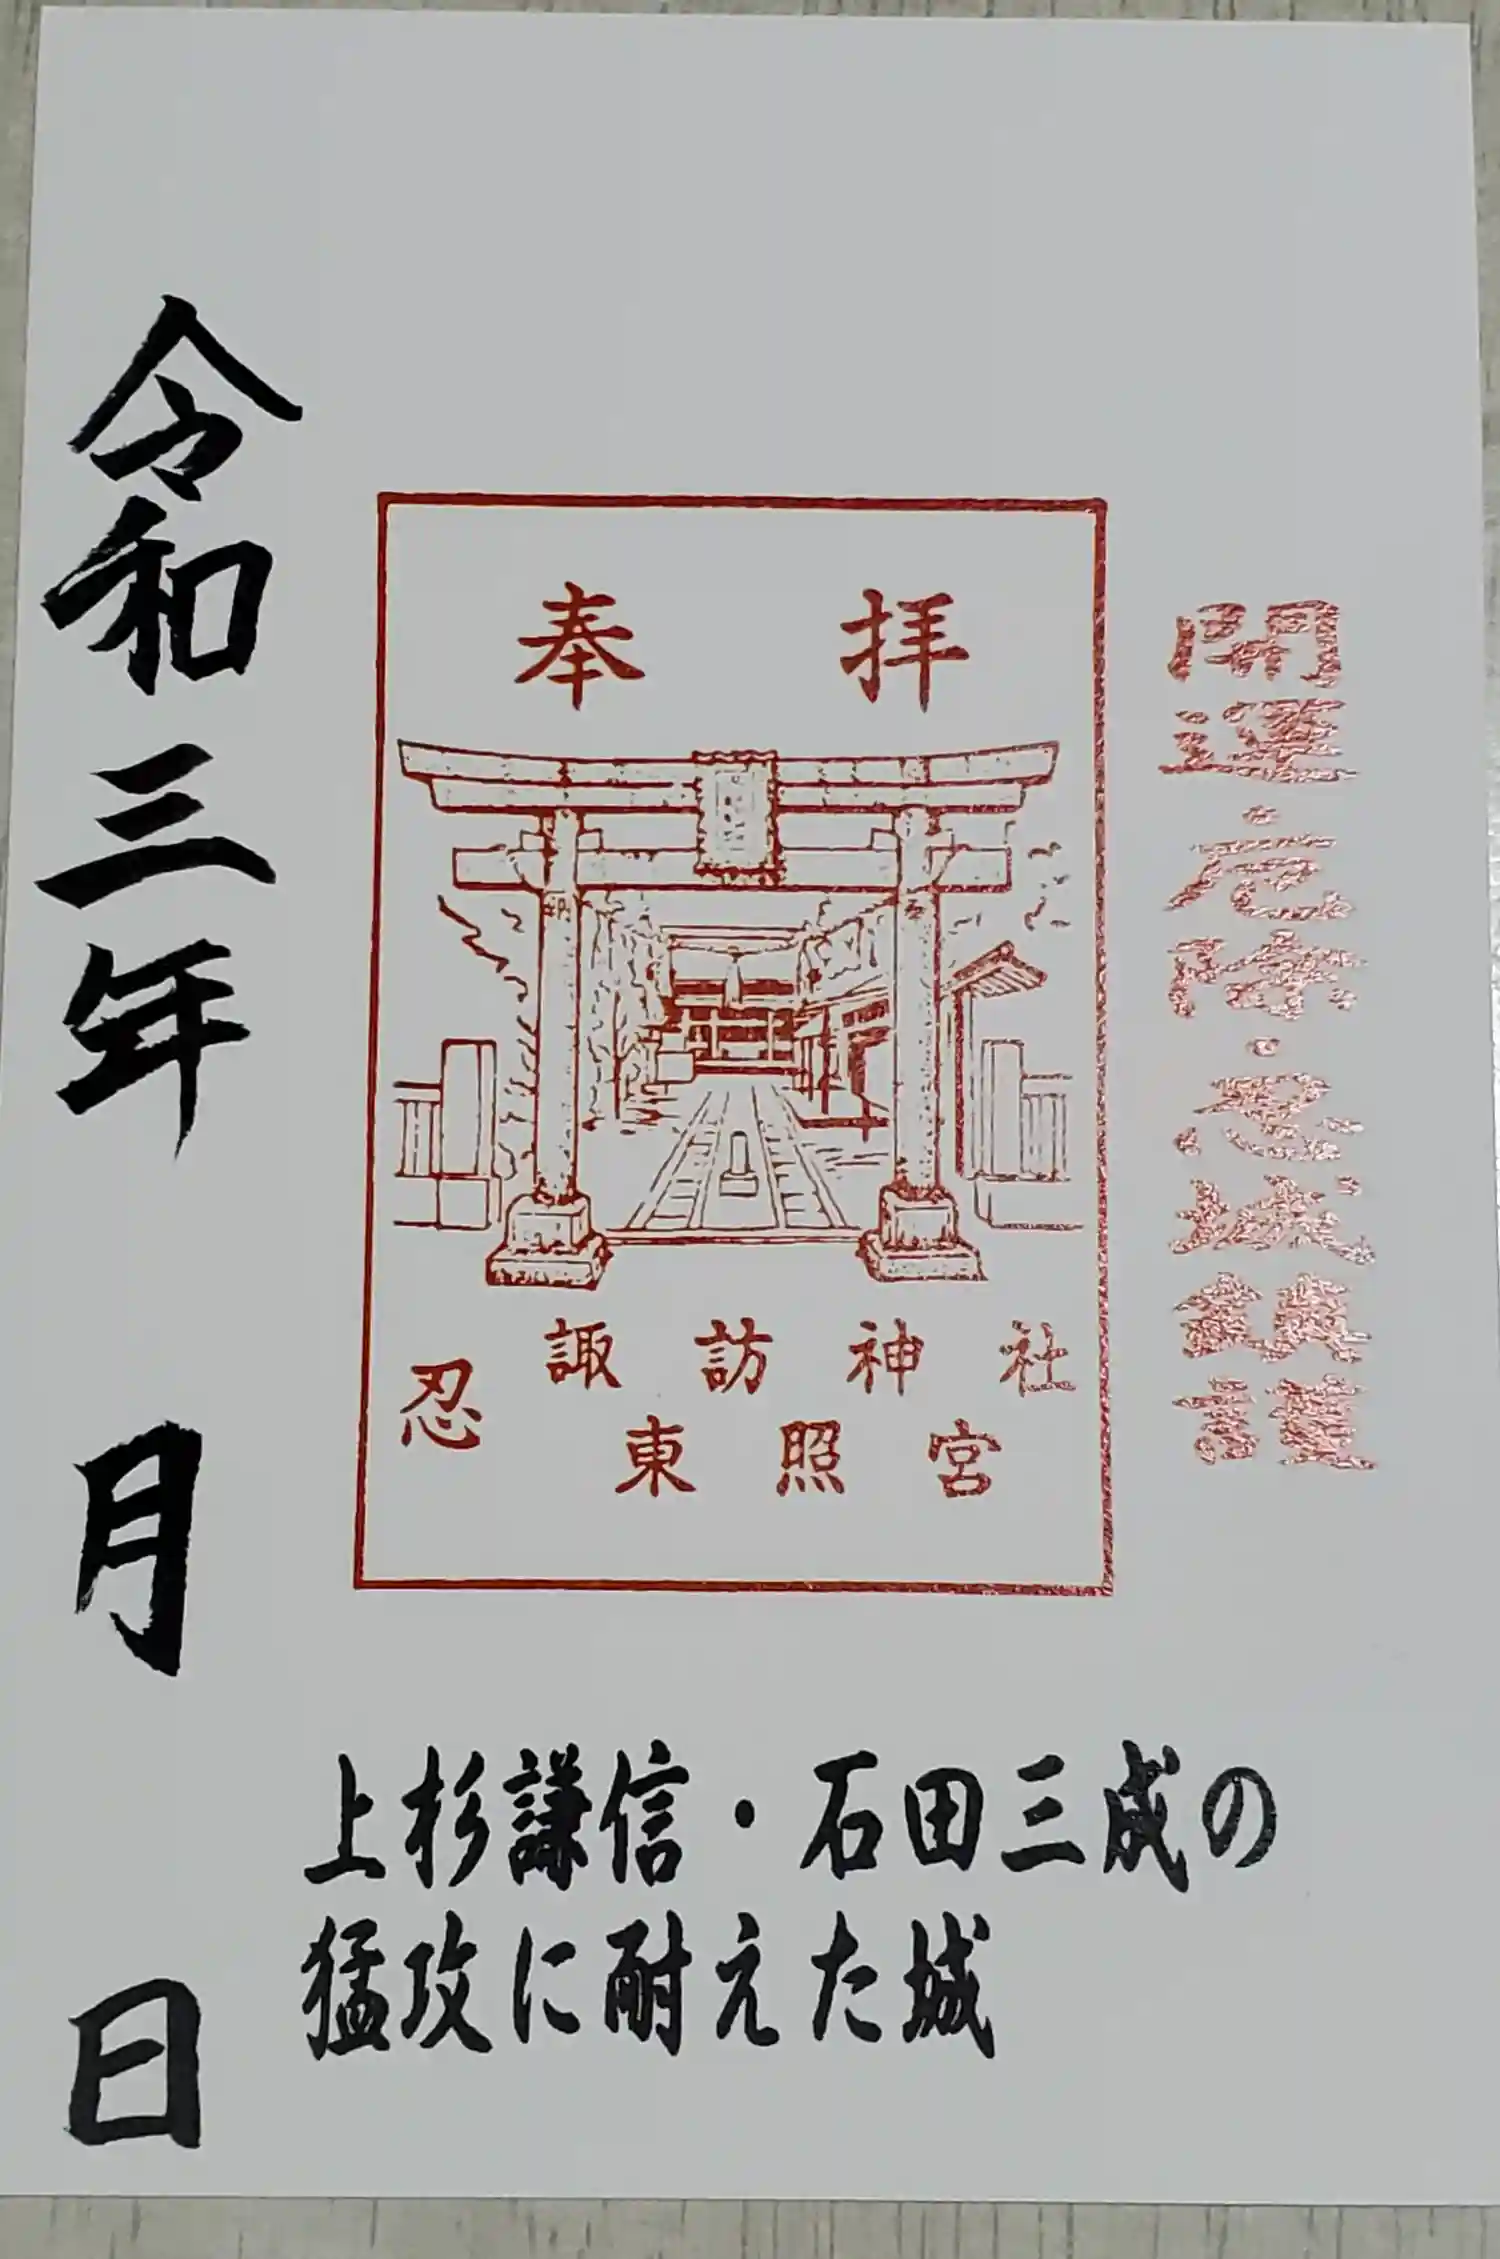 開運・厄除・忍城鎮護
奉拝
忍
諏訪神社
東照宮
令和三年 月 日
上杉謙信・石田三成の
猛攻に耐えた城